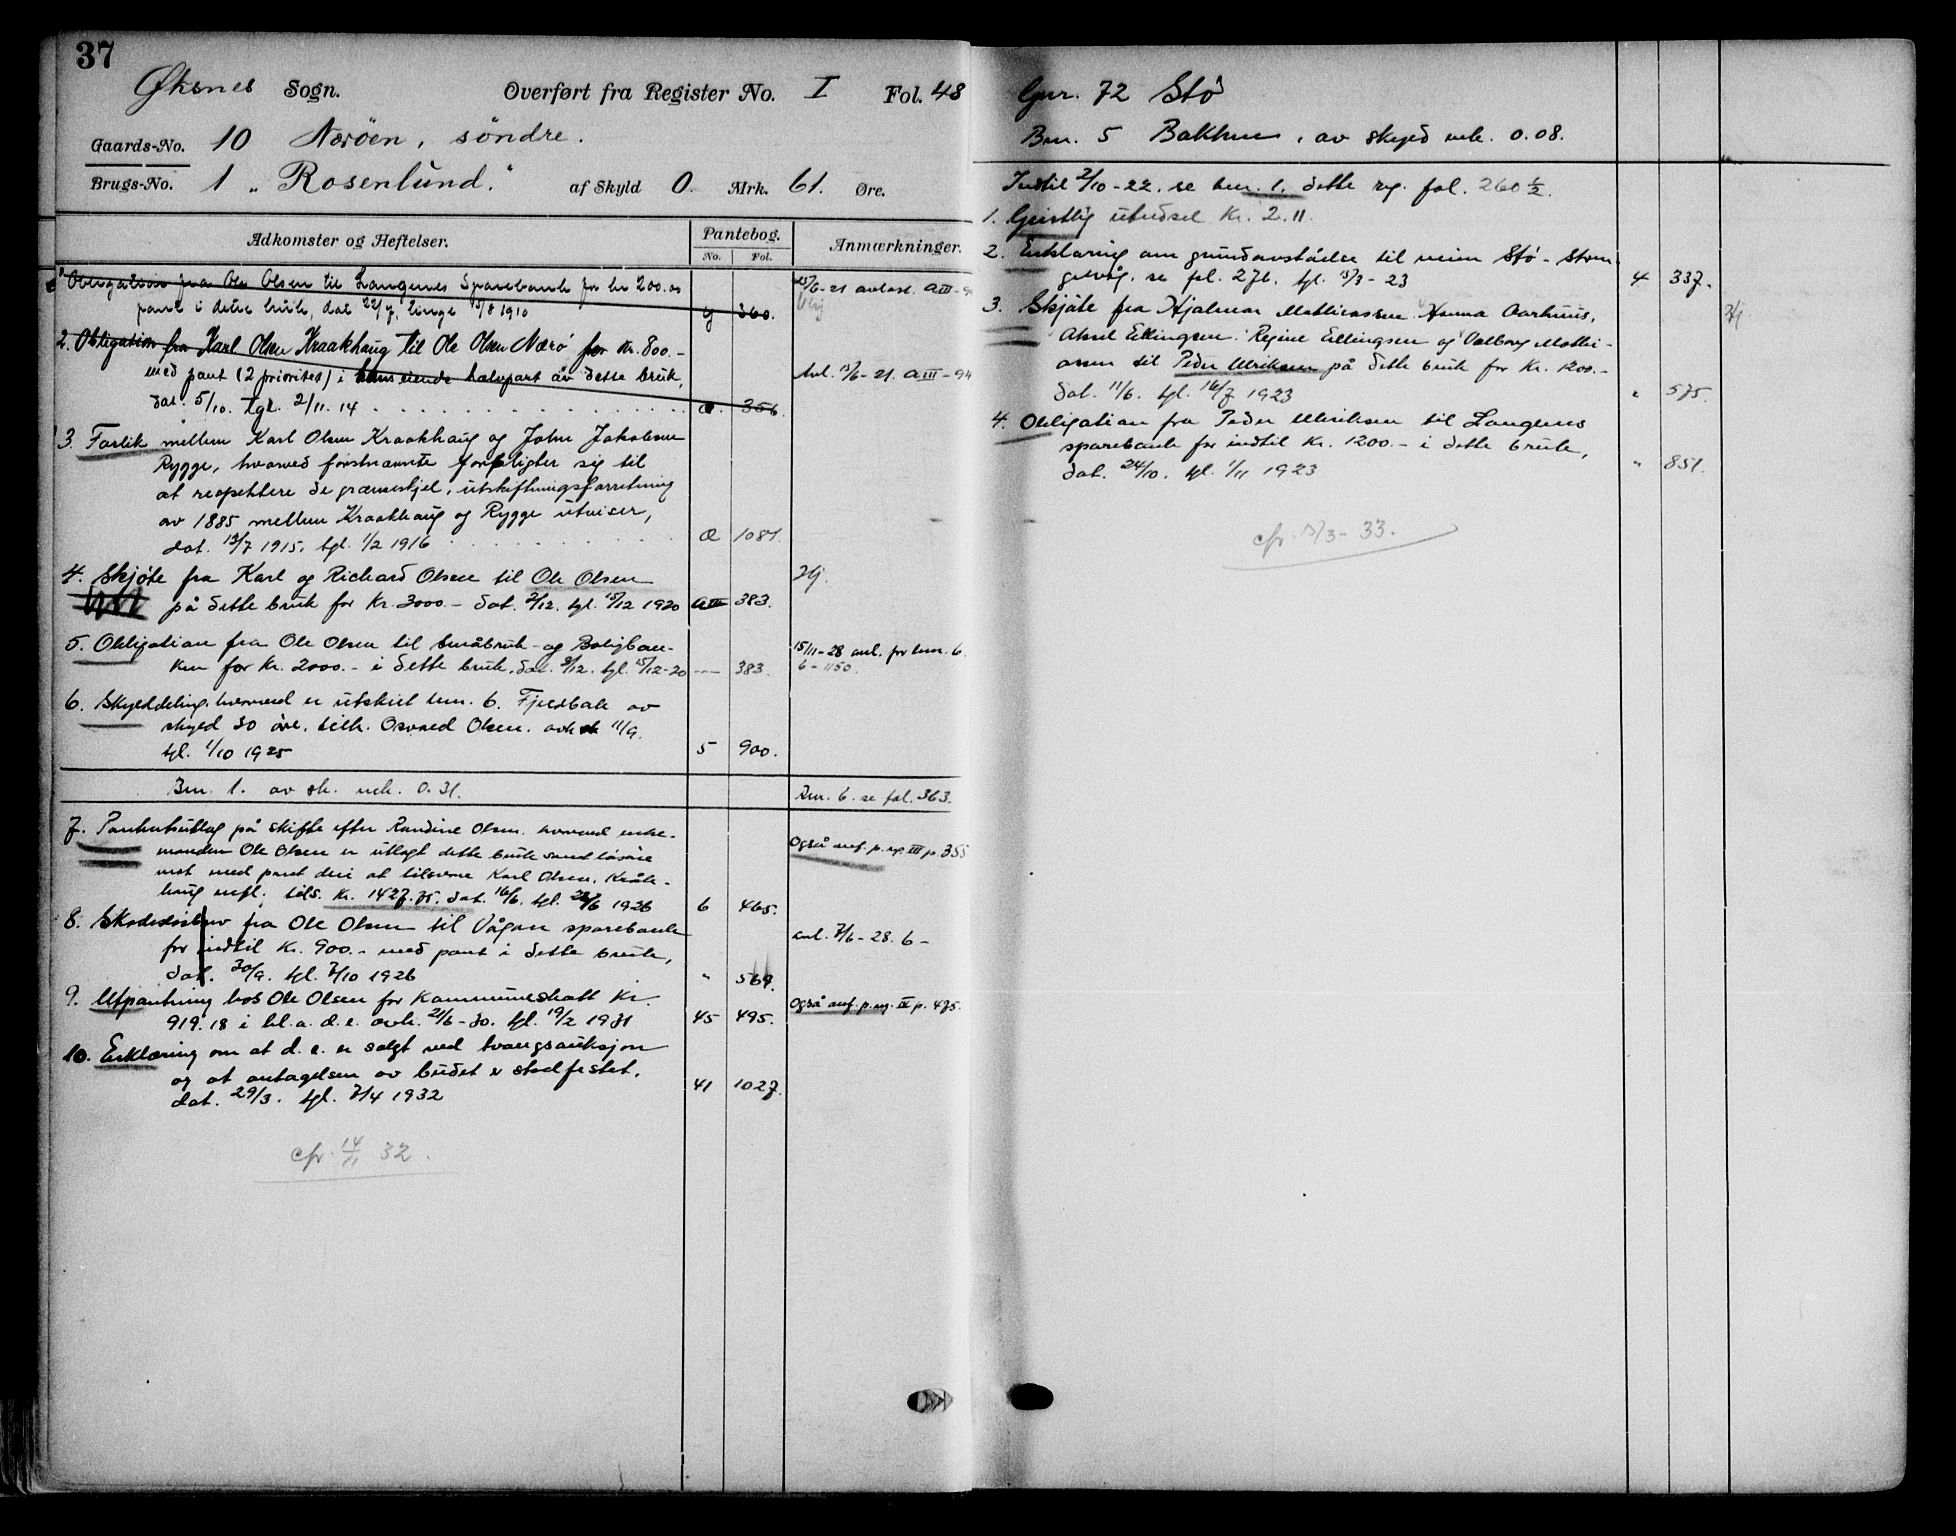 37
Øksnes Sogn. Overført fra Register No. I Fol. 48
Gaards-No. 10 Nærøen, søndre.
Brugs-No. 1 „Rosenlund." af Skyld 0. Mrk. 61. Øre.
Adkomster og Heftelser. Pantebog. Anmærkninger.
No. Fol.
Obligation fra Ole Olsen til Langenes Sparebank for kr 200.00
pant i dette bruk, dat 22/7, tingl 15/8 1910 y 360.
15/6-21 avlæst. A III-94
2. Obligation fra Karl Olsen Kraakhaug til Ole Olsen Nærø for Kr. 800.-
med pant (2 prioritet) i hans eiende halvpart av dette bruk,
dat. 5/10. tgl. 2/11. 14 a. 356.
Avl. 15/6-21. A III-94
3. Forlik mellem Karl Olsen Kraakhaug og John Jakobsen
Rygge, hvorved førstnævnte forpligter sig til
at respektere de grænseskjel, utskiftningsforretning
av 1885 mellem Kraakhaug og Rygge utviser,
dat. 13/7 1915, tgl. 1/2 1916 a 1081.
4. Skjøte fra Karl og Richard Olsen til Ole Olsen Hj.
på dette bruk for Kr. 3000.- dat. 2/12. tgl. 15/12 1920 A III 383.
5. Obligation fra Ole Olsen til Småbruk- og Boligban-
ken for Kr. 2000.- i dette bruk, dat. 2/12. tgl. 15/12-20 — 383.
15/11-28 avl. for bnr. 6.
6-1150.
6. Skylddeling, hvorved er utskilt bnr. 6. Fjeldbak av
skyld 30 øre. tilh. Osvald Olsen. avh 11/9.
tgl. 1/10 1925 5 900.
Bnr. 1. av sk. mk. 0.31. Bnr. 6. se fol. 363.
7. Panteutlæg på skifte efter Randine Olsen. hvorved enke-
manden Ole Olsen er utlagt dette bruk samt løsøre
mot med pant deri at tilsvare Karl Olsen, Kråk-
haug mfl. tils. Kr. 1427.75. dat. 16/6. tgl. 28/6 1926 6 465.
Også anf. p. reg. III p. 355
8. Skadesløsbrev fra Ole Olsen til Vågan sparebank
for indtil Kr. 900.- med pant i dette bruk,
dat. 30/9. tgl. 7/10 1926 " 569.
avl. 7/6-28. 6-
9. Utpantning hos Ole Olsen for kommuneskatt Kr.
919.18 i bl.a. d.e. avh. 21/6-30. tgl. 19/2 1931 45 495.
Også anf. p. reg. IV p. 475.
10. Erklæring om at d.e. er solgt ved tvangsauksjon
og at antagelsen av budet er stadfestet.
dat. 29/3. tgl. 7/4 1932 41 1027.
cfr. 14/11 32.
Gnr. 72 Stø
Bnr. 5 Bakhus, av skyld mk. 0.08.
Indtil 2/10-22. se bnr. 1. dette reg. fol. 260 1/2.
1. Geistlig utredsel Kr. 2.11.
2. Erklæring om grundavståelse til veien Stø-Stren-
gelvåg. se fol. 276. tgl. 15/3-23 4 337.
3. Skjøte fra Hjalmar Mathiassen, Hanna Aarhuus, Hj
Aksel Ellingsen, Regine Ellingsen og Valborg Mathi-
asen til Peder Ulriksen på dette bruk for Kr. 1200.-
dat. 11/6. tgl. 16/7 1923 " 575.
4. Obligation fra Peder Ulriksen til Langenes
sparebank for indtil Kr. 1200.- i dette bruk,
dat. 24/10. tgl. 1/11 1923 " 851.
cfr. 13/3-33.